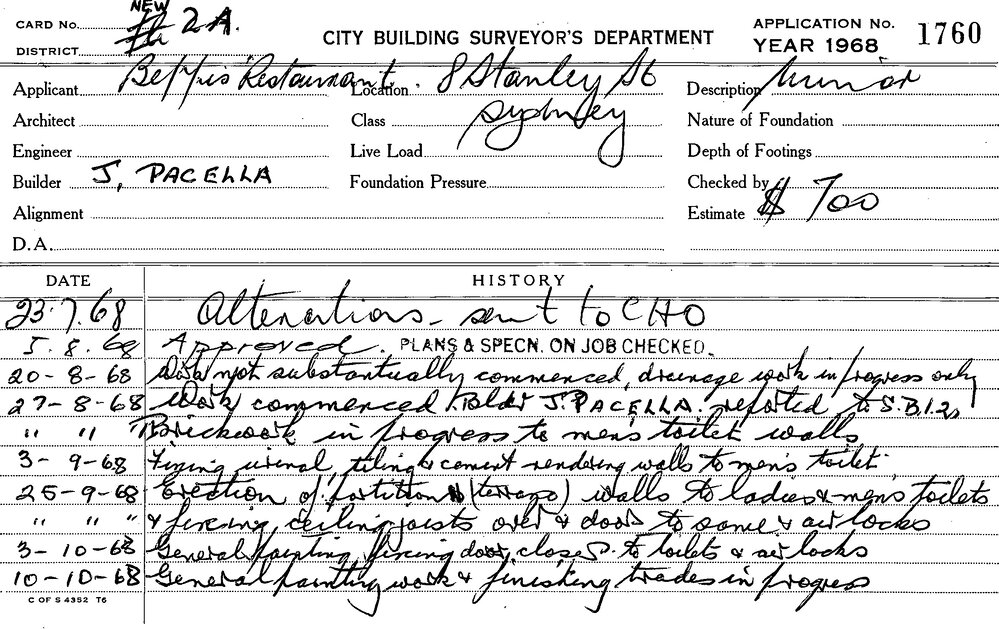 CARD No. NEW 2A.
DISTRICT
CITY BUILDING SURVEYOR'S DEPARTMENT
APPLICATION No. 1760
YEAR 1968
Applicant Beppis Restaurant Location 8 Stanley St Description Minor
Architect Class Sydney Nature of Foundation
Engineer Live Load Depth of Footings
Builder J. PACELLA Foundation Pressure Checked by
Alignment Estimate $ 700
D.A.
DATE HISTORY
23.7.68 Alterations - sent to CHO
5.8.68 Approved. PLANS & SPECN. ON JOB CHECKED.
20-8-68 Work not substantually commenced, drainage work in progress only
27-8-68 Work commenced J. PACELLA. reported to S.B.I.
" " " Brickwork in progress to men's toilet walls
3-9-68 Fixing urinal, tiling & cement rendering walls to men's toilet
25-9-68 Erection of partition (terrazo) walls to ladies & men's toilets
" " " & fixing ceiling joists over & doors to same & air locks
3-10-68 General painting fixing door closers to toilets & air locks
10-10-68 General painting work & finishing trades in progress
C OF S 4352 T6